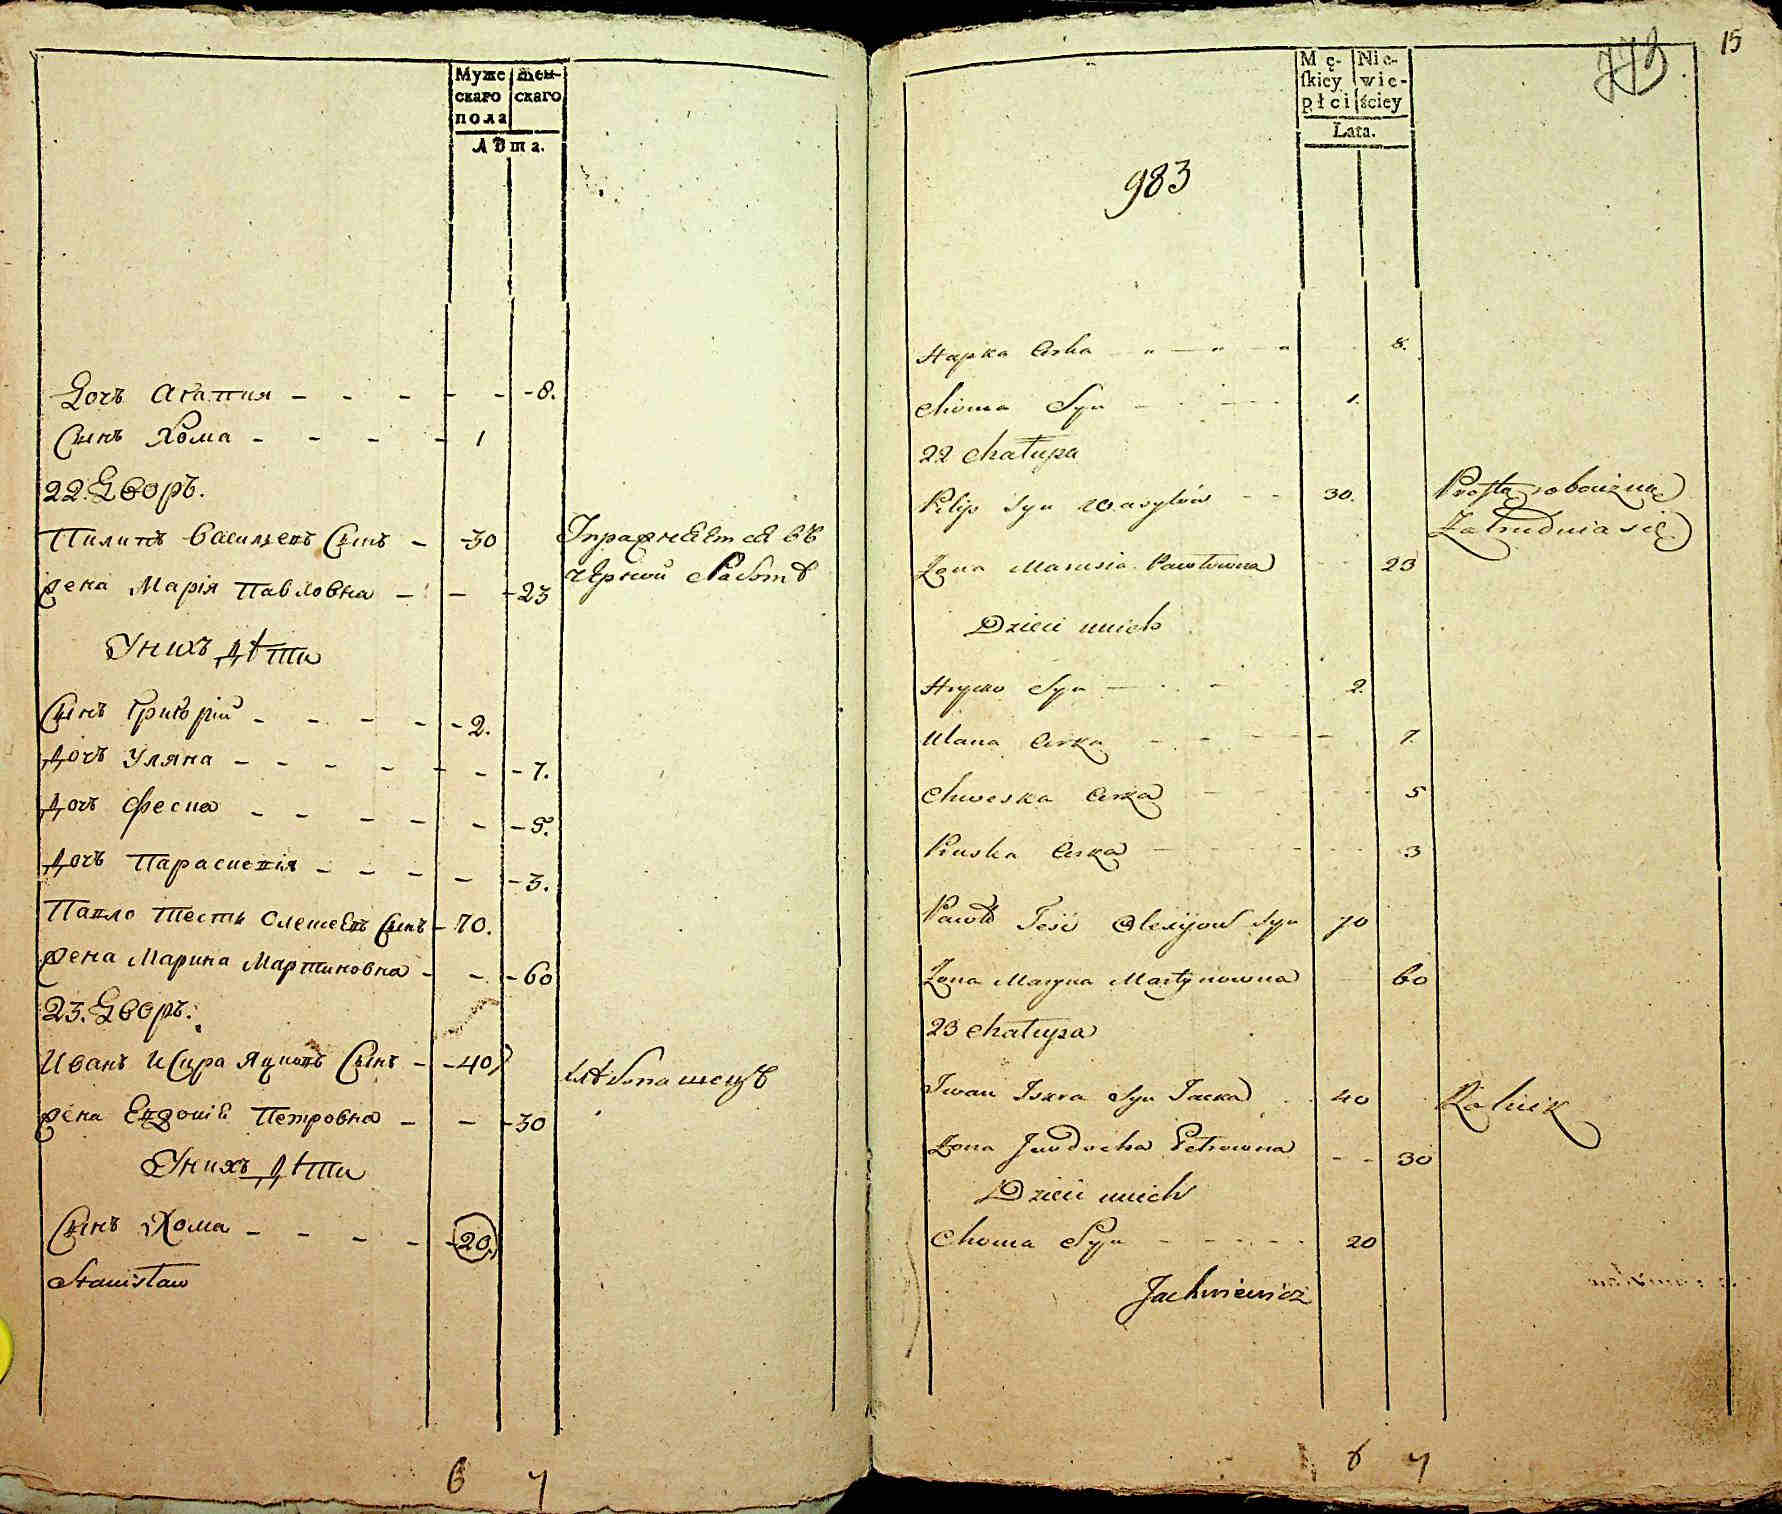 Муже
скаго
пола
Жен-
скаго
Лѣта.
Дочь Агапия - - - - - - 8.
Сынъ Хома - - - - 1
22. Дворъ.
Пилипъ Васильевъ Сынъ - -30
Упражняется въ
черной работѣ
жена Марія Павловна - - - 23
У нихъ дѣти
Сынъ Григорій - - - - - 2.
Дочь Уляна - - - - - - - 7.
Дочь Феска - - - - - - 5.
Дочь Парасковія - - - - - 3.
Павло тесть Олексѣевъ Сынъ - 70.
жена Марина Мартиновна - - - 60
23. Дворъ.
Иванъ Искра Яцковъ Сынъ - - 40
хлѣбопашецъ
жена Евдокія Петровна - - - 30
У нихъ дѣти
Сынъ Хома - - - - - 20.
Stanisław
6 7
15
983
Mę-
skiey
płci
Nie-
wie-
ściey
Lata.
Hapka Corka 8.
Choma Syn 1.
22 Chałupa
Pilip Syn Wasylów - - 30.
Prostą robocizną
Zatrudnia się
Żona Marusia Pawłowna - - 23
Dzieci unich
Hrycko Syn 2.
Ulana Corka 7.
Chweska Corka 5
Paraska Corka 3
Pawło Teść Olexijow Syn 70
Żona Maryna Martynowna 60
23 Chałupa
Iwan Iskra Syn Jacka 40
Rolnik
Żona Jawdocha Petrowna - - 30
Dzieci unich
Choma Syn 20
Jachniewicz
6 7